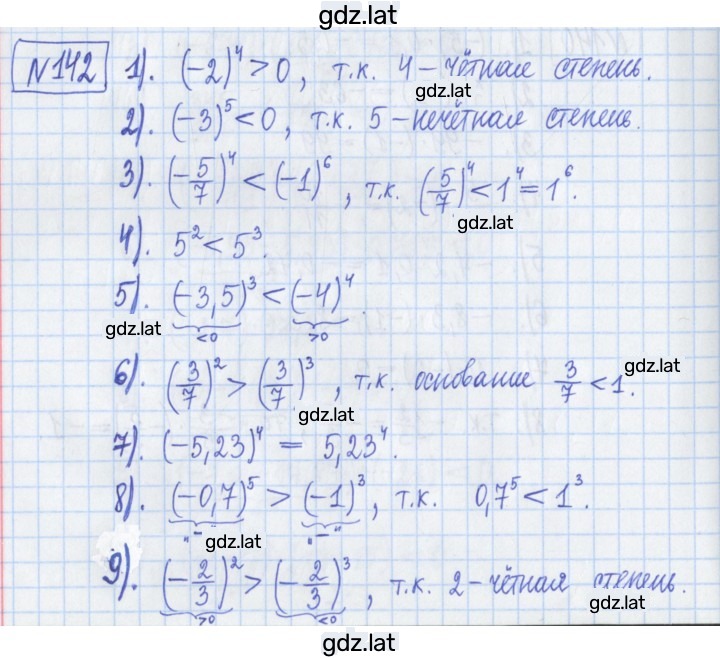 gdz.lat
№142 1). (-2)⁴ > 0, т.к. 4 - чётная степень.
gdz.lat
2). (-3)⁵ < 0, т.к. 5 - нечётная степень.
3). (-5/7)⁴ < (-1)⁶, т.к. (5/7)⁴ < 1⁴ = 1⁶.
gdz.lat
4). 5² < 5³.
5). (-3,5)³ < (-4)⁴.
gdz.lat <0 >0
6). (3/7)² > (3/7)³, т.к. основание 3/7 < 1.
gdz.lat
gdz.lat
7). (-5,23)⁴ = 5,23⁴.
8). (-0,7)⁵ > (-1)³, т.к. 0,7⁵ < 1³.
"-" gdz.lat "-"
9). (-2/3)² > (-2/3)³, т.к. 2 - чётная степень.
>0 <0 gdz.lat
gdz.lat